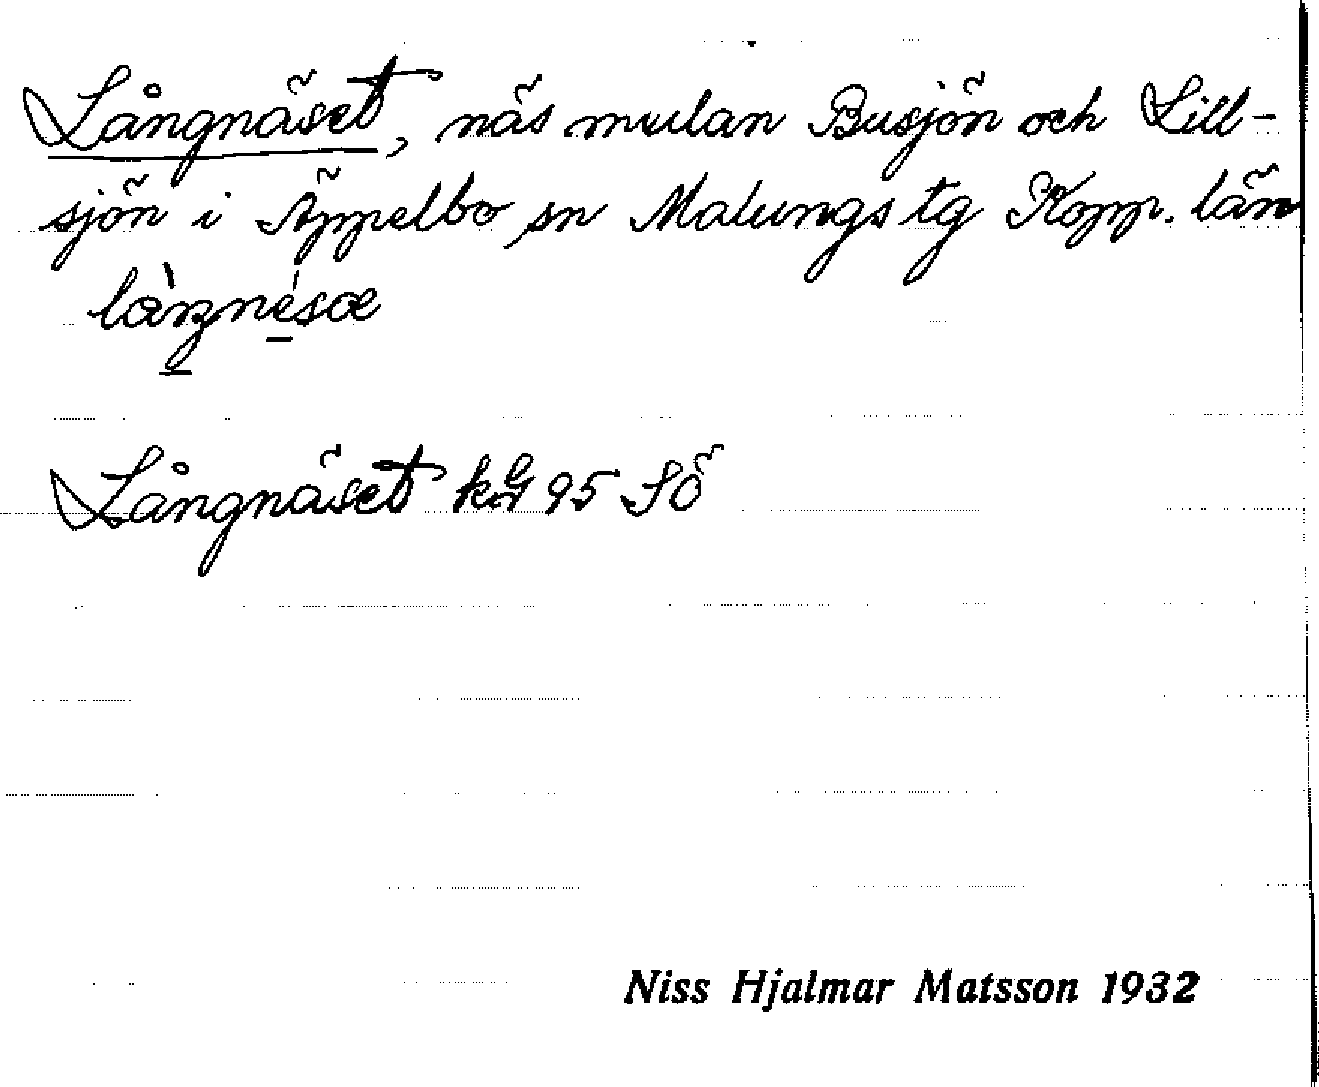 Långnäset, näs mulan Busjön och Lill-
sjön i Äppelbo sn Malungs tg Kopp. län
Långnäset 95 SÖ
Niss Hjalmar Matsson 1932